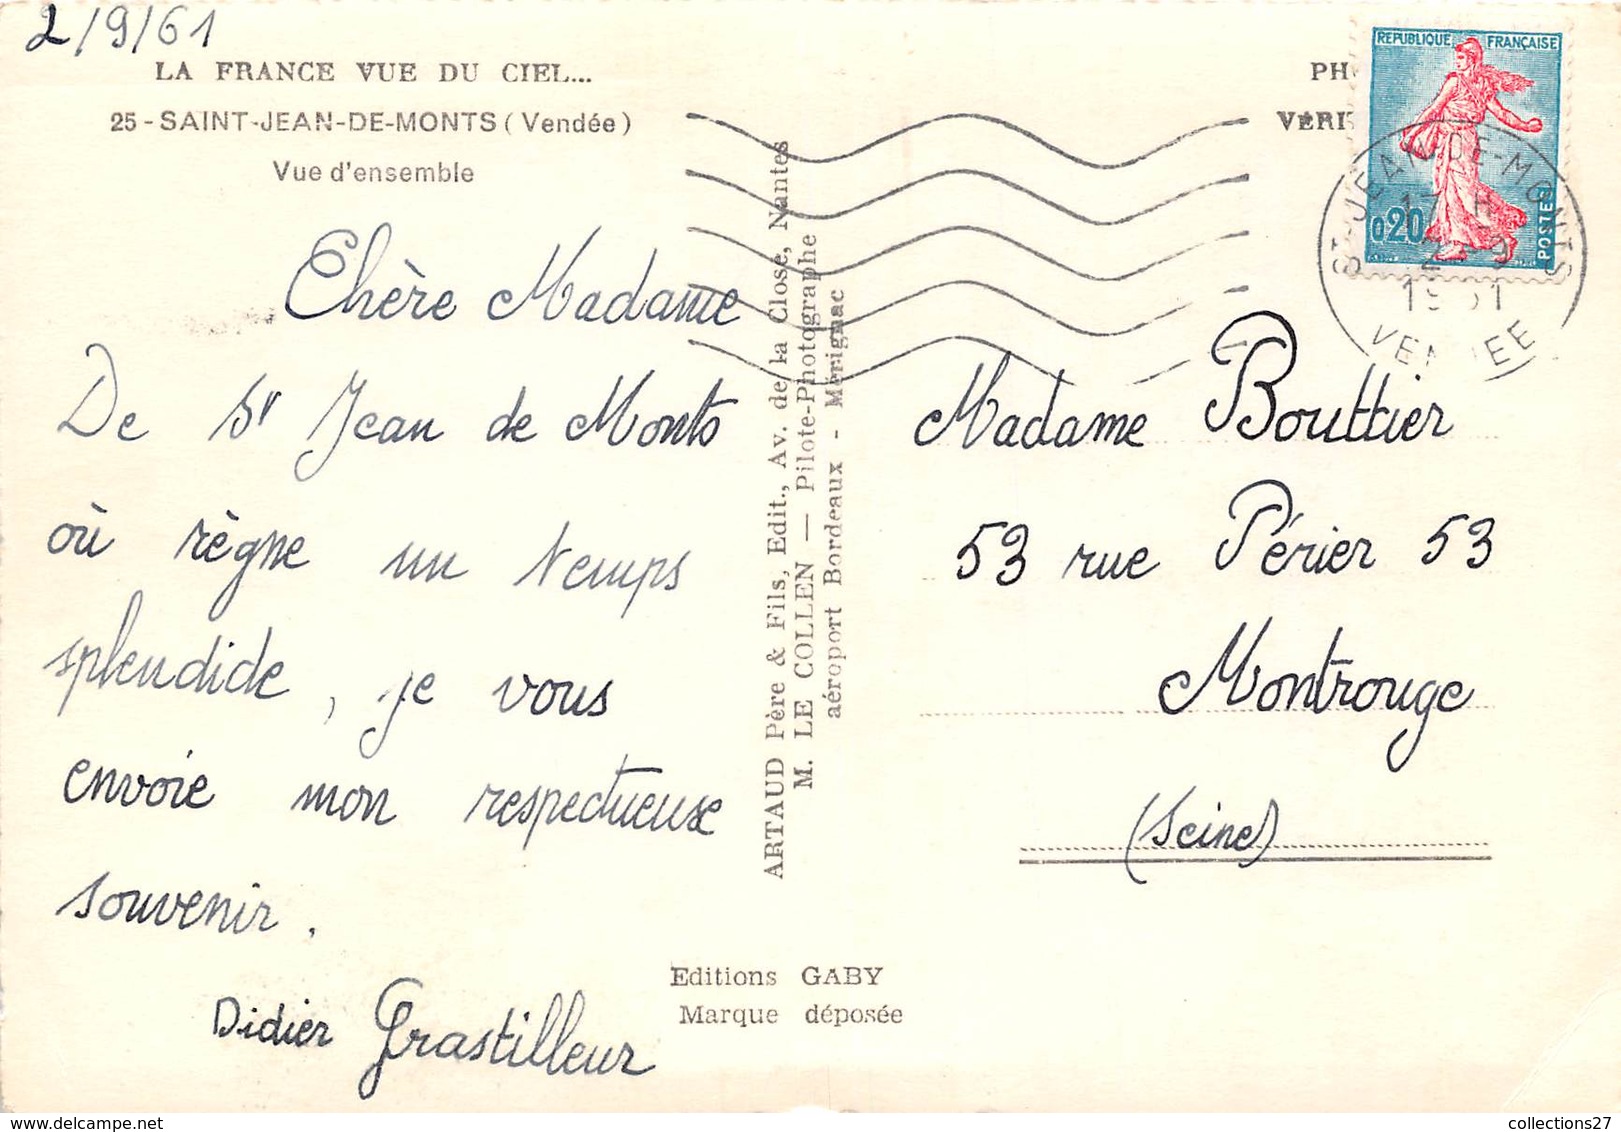 2/9/61
LA FRANCE VUE DU CIEL...
25 - SAINT-JEAN-DE-MONTS (Vendée)
Vue d'ensemble
Chère Madame
De St Jean de Monts
où règne un temps
splendide, je vous
envoie mon respectueuse
souvenir.
Didier Grastilleur
ARTAUD Père & Fils, Edit., Av. de la Close, Nantes
M. LE COLLEN — Pilote-Photographe
aéroport Bordeaux - Mérignac
Editions GABY
Marque déposée
PH
VÉRI
REPUBLIQUE FRANÇAISE
0,20
POSTES
ST-JEAN-DE-MONTS
VENDEE
Madame Bouttier
53 rue Périer 53
Montrouge
(Seine)
collections27